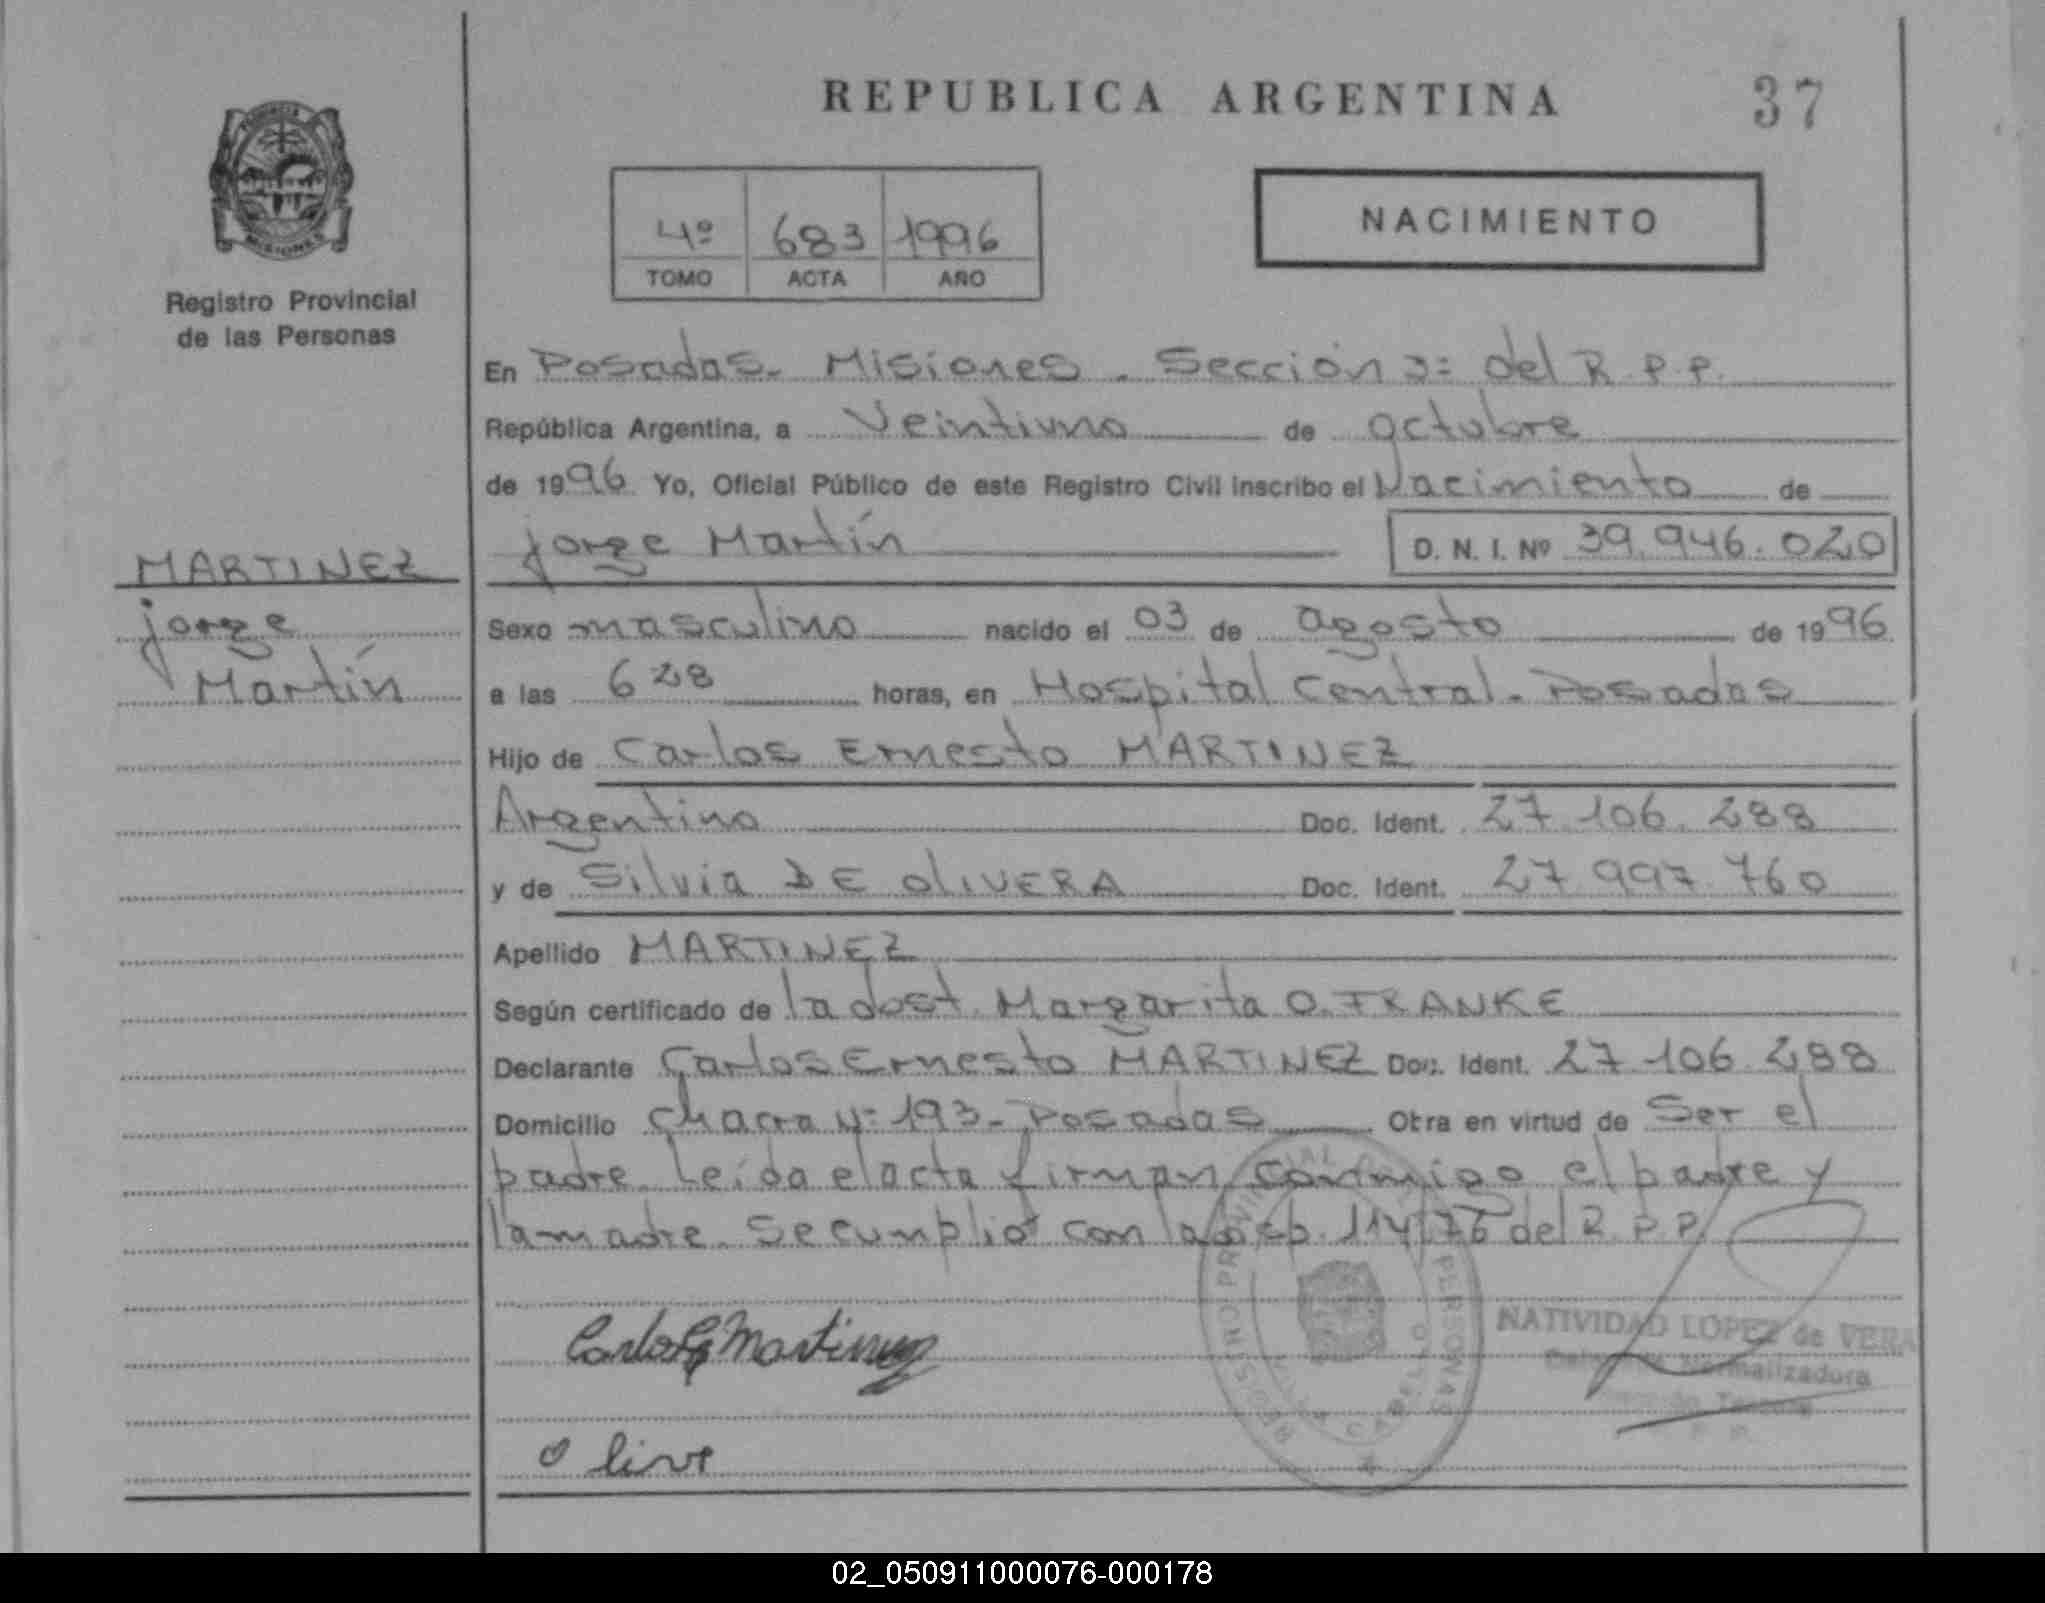 REPUBLICA ARGENTINA
37
PROVINCIA
MISIONES
Registro Provincial
de las Personas
4º 683 1996
TOMO ACTA AÑO
NACIMIENTO
En Posadas- Misiones - Sección 3= del R.P.P.
República Argentina, a Veintiuno de octubre
de 1996 Yo, Oficial Público de este Registro Civil inscribo el Nacimiento de
Jorge Martín D. N. I. Nº 39.946.020
MARTINEZ
Jorge
Martín
Sexo masculino nacido el 03 de agosto de 1996
a las 6 28 horas, en Hospital Central- Posadas
Hijo de Carlos Ernesto MARTINEZ
Argentino Doc. Ident. 27.106.288
y de Silvia DE OLIVERA Doc. Ident. 27.997.760
Apellido MARTINEZ
Según certificado de la obst. Margarita O. FRANKE
Declarante Carlos Ernesto MARTINEZ Doc. Ident. 27.106.288
Domicilio Chacra Nº 193- Posadas Otra en virtud de Ser el
padre. Leída el acta firman conmigo el padre y
la madre. Se cumplió con la 114/76 del R.P.P.
Carlos E Martinez
REGISTRO PROVINCIAL PERSONAS
CABELLO
NATIVIDAD LOPEZ de VERA
Normalizadora
02_050911000076-000178